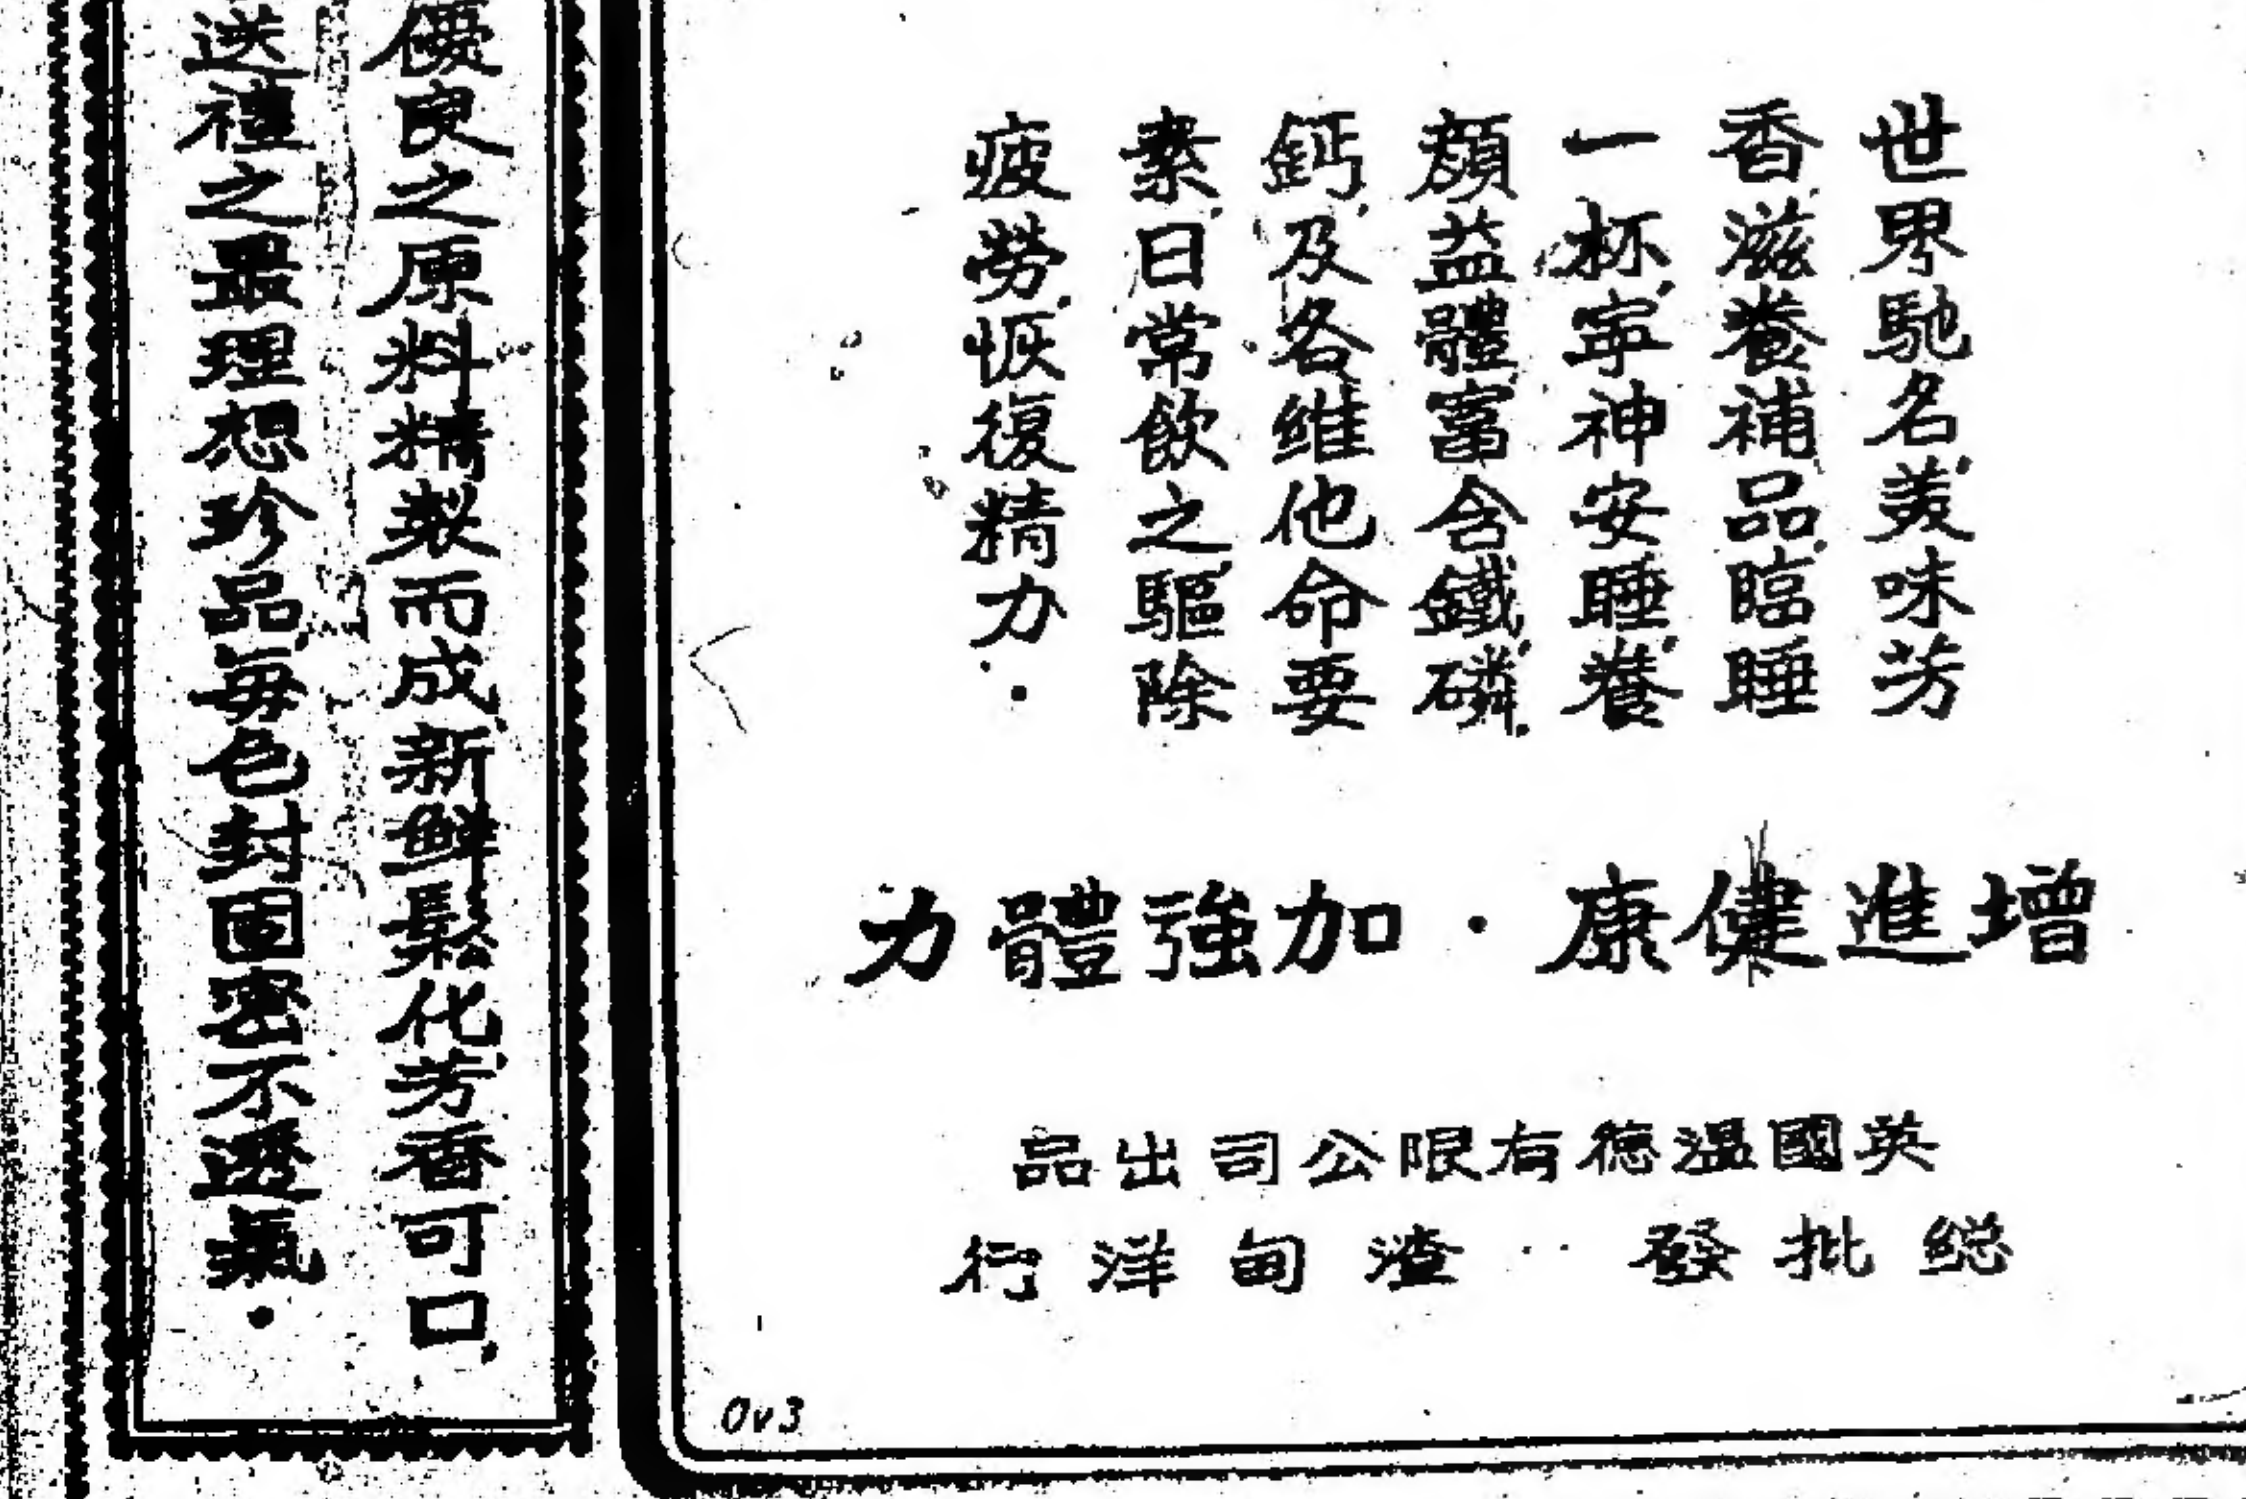 世界馳名,美味芳
香,滋養補品,臨睡
一杯,寧神安睡,養
顏益體,富含鐵,磷,
鈣,及各維他命要
素,日常飲之,驅除
疲勞,恢復精力.
增進健康·加強體力
英國溫德有限公司出品
総批發··渣甸洋行
Ov3
優良之原料精製而成,新鮮鬆化,芳香可口,
送禮之最理想珍品,每包封固密不透氣.